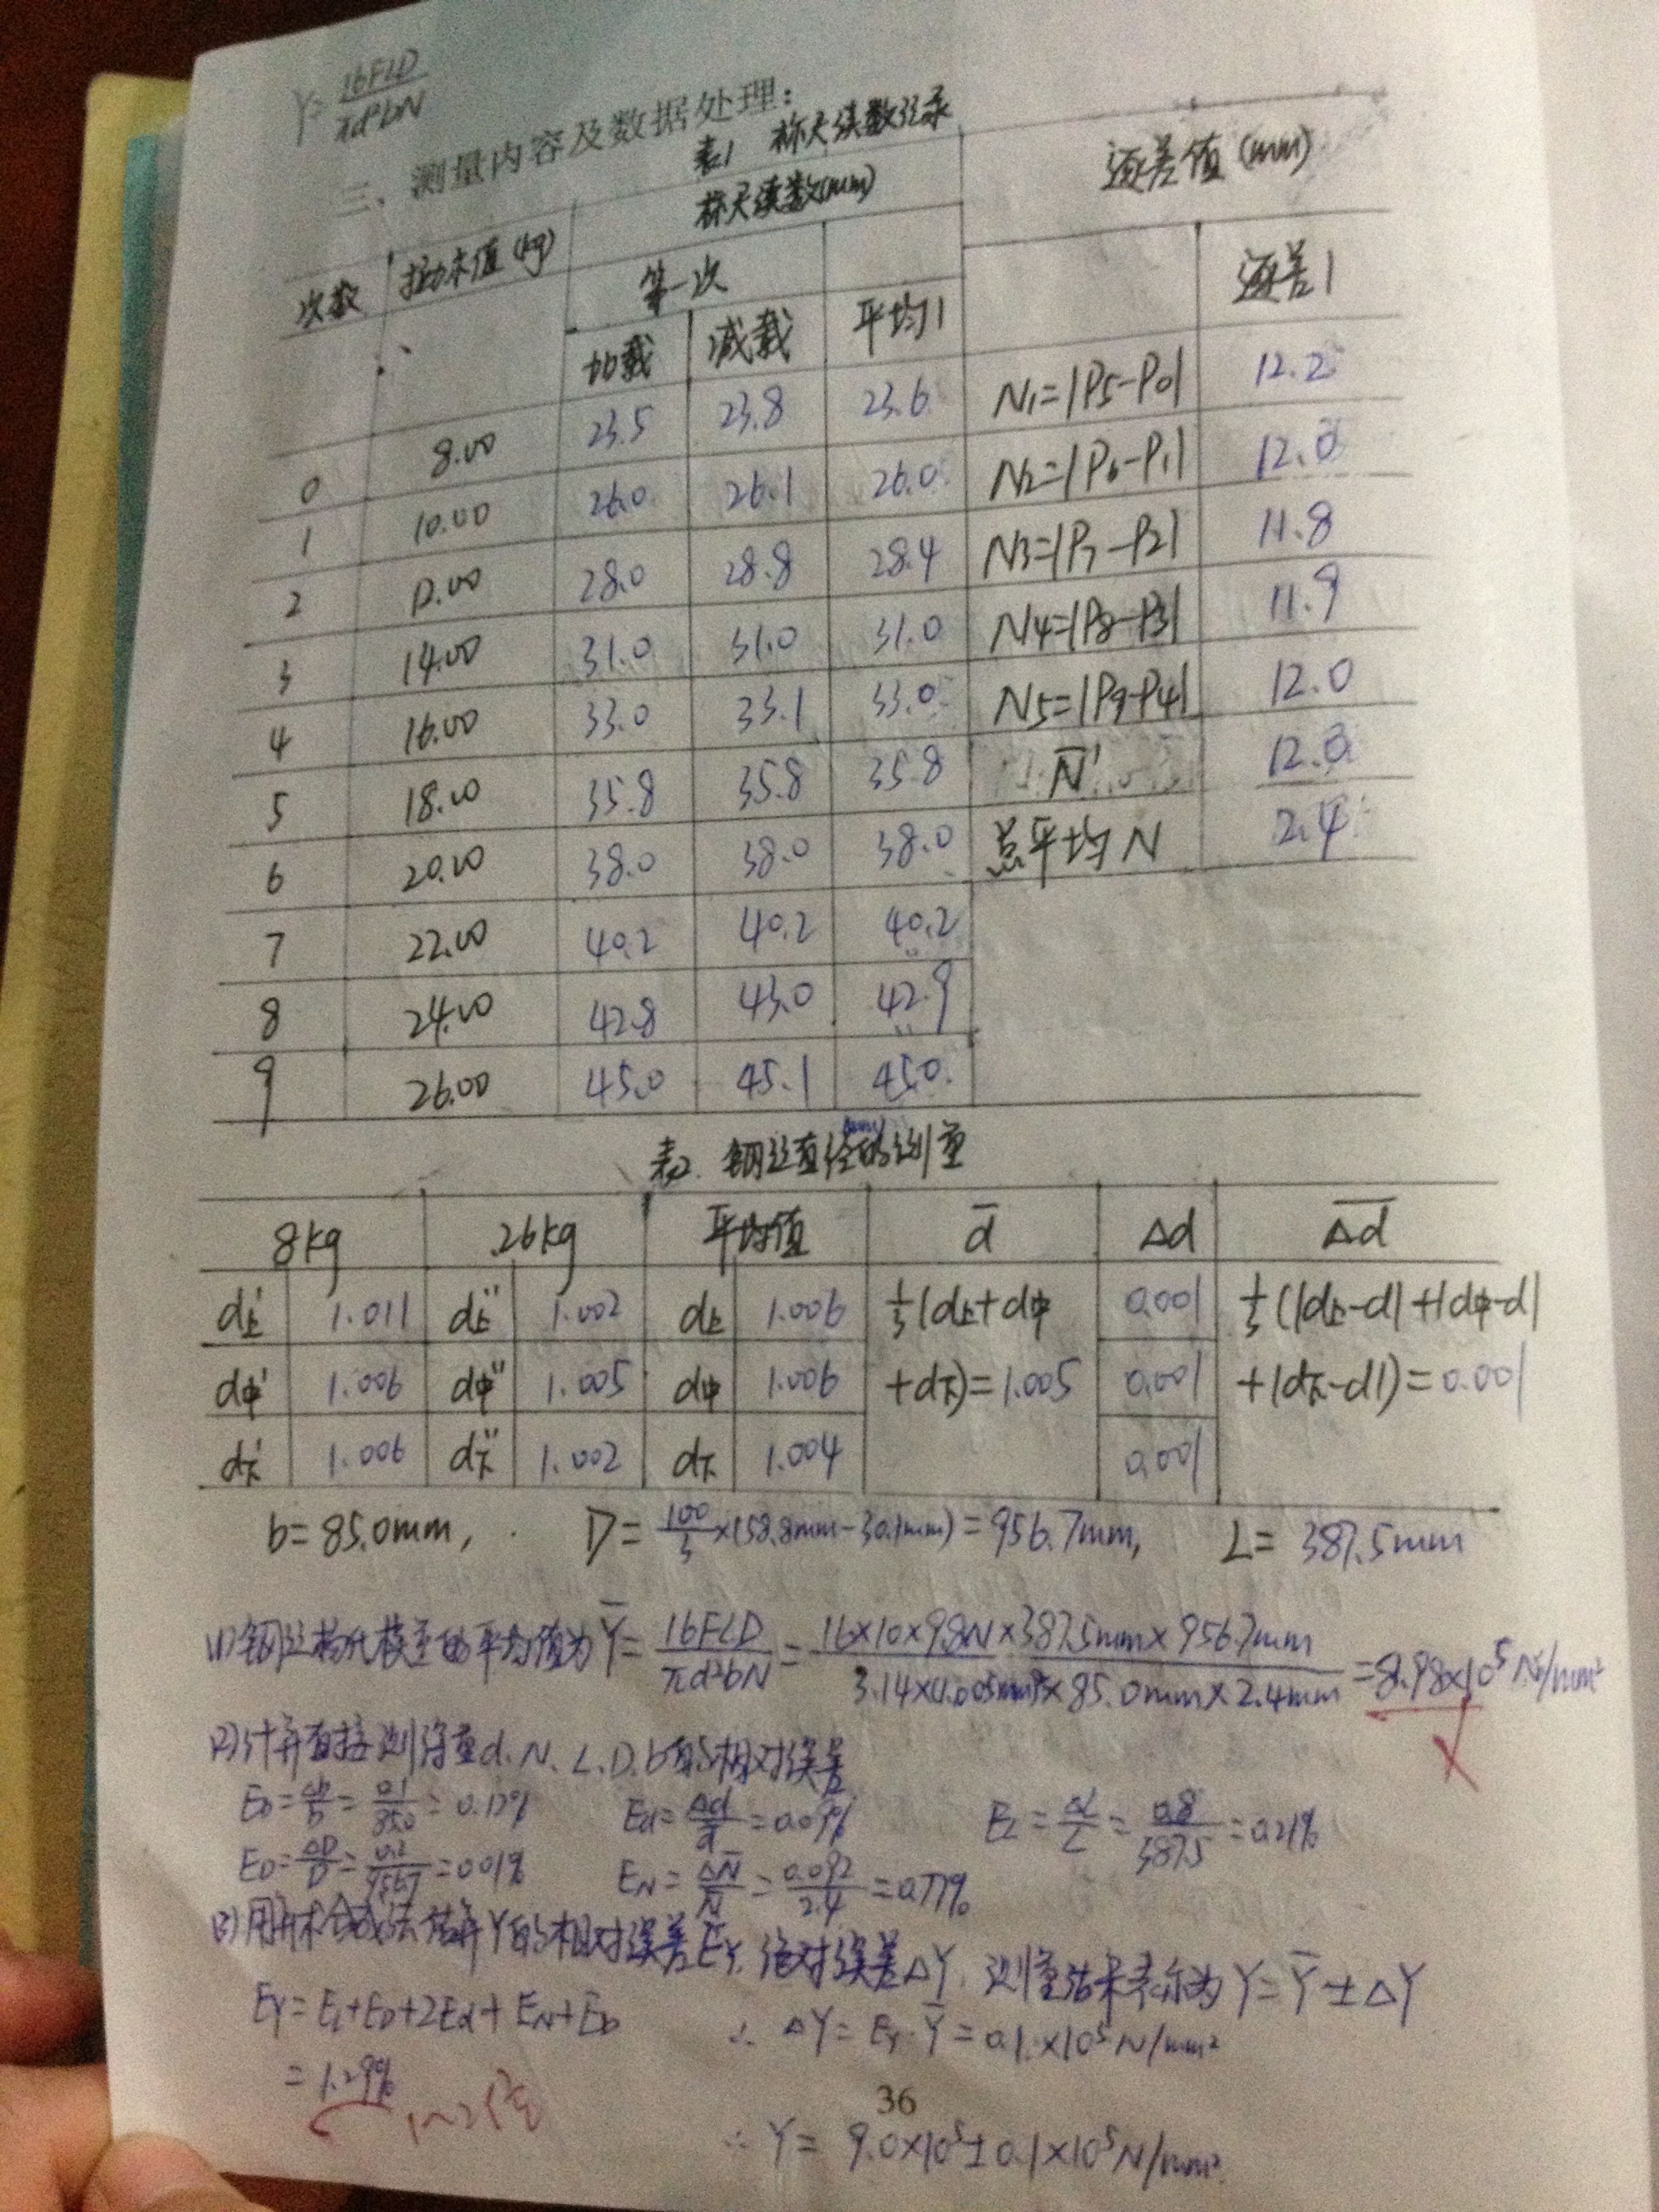 Y=16FLD/πd²bN
三、测量内容及数据处理:
表1 标尺读数记录
次数 拉力示值(kg) 标尺读数(mm) 逐差值(mm)
第一次 逐差1
加载 减载 平均1
0 8.00 23.5 23.8 23.6 N1=|P5-P0| 12.2
1 10.00 26.0 26.1 26.0 N2=|P6-P1| 12.0
2 12.00 28.0 28.8 28.4 N3=|P7-P2| 11.8
3 14.00 31.0 31.0 31.0 N4=|P8-P3| 11.9
4 16.00 33.0 33.1 33.0 N5=|P9-P4| 12.0
5 18.00 35.8 35.8 35.8 N̄' 12.0
6 20.00 38.0 38.0 38.0 总平均N 2.4
7 22.00 40.2 40.2 40.2
8 24.00 42.8 43.0 42.9
9 26.00 45.0 45.1 45.0
表2 钢丝直径的测量 (mm)
8kg 26kg 平均值 d̄ Δd Δd̄
d上' 1.011 d上'' 1.002 d上 1.006 1/3(d上+d中 0.001 1/3(|d上-d|+|d中-d|
d中' 1.006 d中'' 1.005 d中 1.006 +d下)=1.005 0.001 +|d下-d|)=0.001
d下' 1.006 d下'' 1.002 d下 1.004 0.001
b=85.0mm, D=100/3×(58.8mm-30.1mm)=956.7mm, L=387.5mm
(1)钢丝杨氏模量的平均值为Ȳ=16FLD/πd²bN=16×10×9.8N×387.5mm×956.7mm/3.14×(1.005mm)²×85.0mm×2.4mm=8.98×10⁵N/mm²
(2)计算直接测得量d、N、L、D、b的相对误差
Eb=Δb/b=0.1/85.0=0.12% Ed=Δd/d=0.09% EL=ΔL/L=0.8/387.5=0.21%
ED=ΔD/D=/956.7=0.01% EN=ΔN̄/N̄=0.092/2.4=0.77%
(3)用算术合成法估算Y的相对误差EY、绝对误差ΔY,测量结果表示为Y=Ȳ±ΔY
EY=EL+ED+2Ed+EN+Eb ∴ΔY=EY·Ȳ=0.1×10⁵N/mm²
=1.29%
1~2位
36
∴Y=9.0×10⁵±0.1×10⁵N/mm²